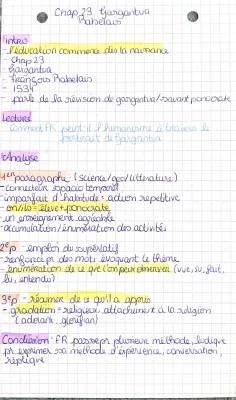 Chap 23 Gargantua
Rabelais
Intro
- l'éducation commence dès la naissance
- Chap 23
- Gargantua
- François Rabelais
- 1534
- parle de la révision de gargantua/savant ponocrate
Lecture
Comment FR peint il l'humanisme à travers le
portrait de Gargantua
Analyse
1er paragraphe (science/geo/littérature)
- connecteur spacio temporel
- imparfait d'habitude: action repetitive
- on/ils = élève + ponocrate
- un enseignement agréable
- accumulation/énumération des activités
2e p - emploi du superlatif
- renforce par des mots évoquant le thème
- énumération de ce que l'on peut observer (vue, su, fait,
lu, entendu)
3e p - résumer de ce qu'il a appris
- gradation - religieux attachement à la religion
(adorant, glorifiant)
Conclusion: FR passe par plusieurs méthode, ludique
pr exprimer sa méthode d'expérience, conversation,
réplique